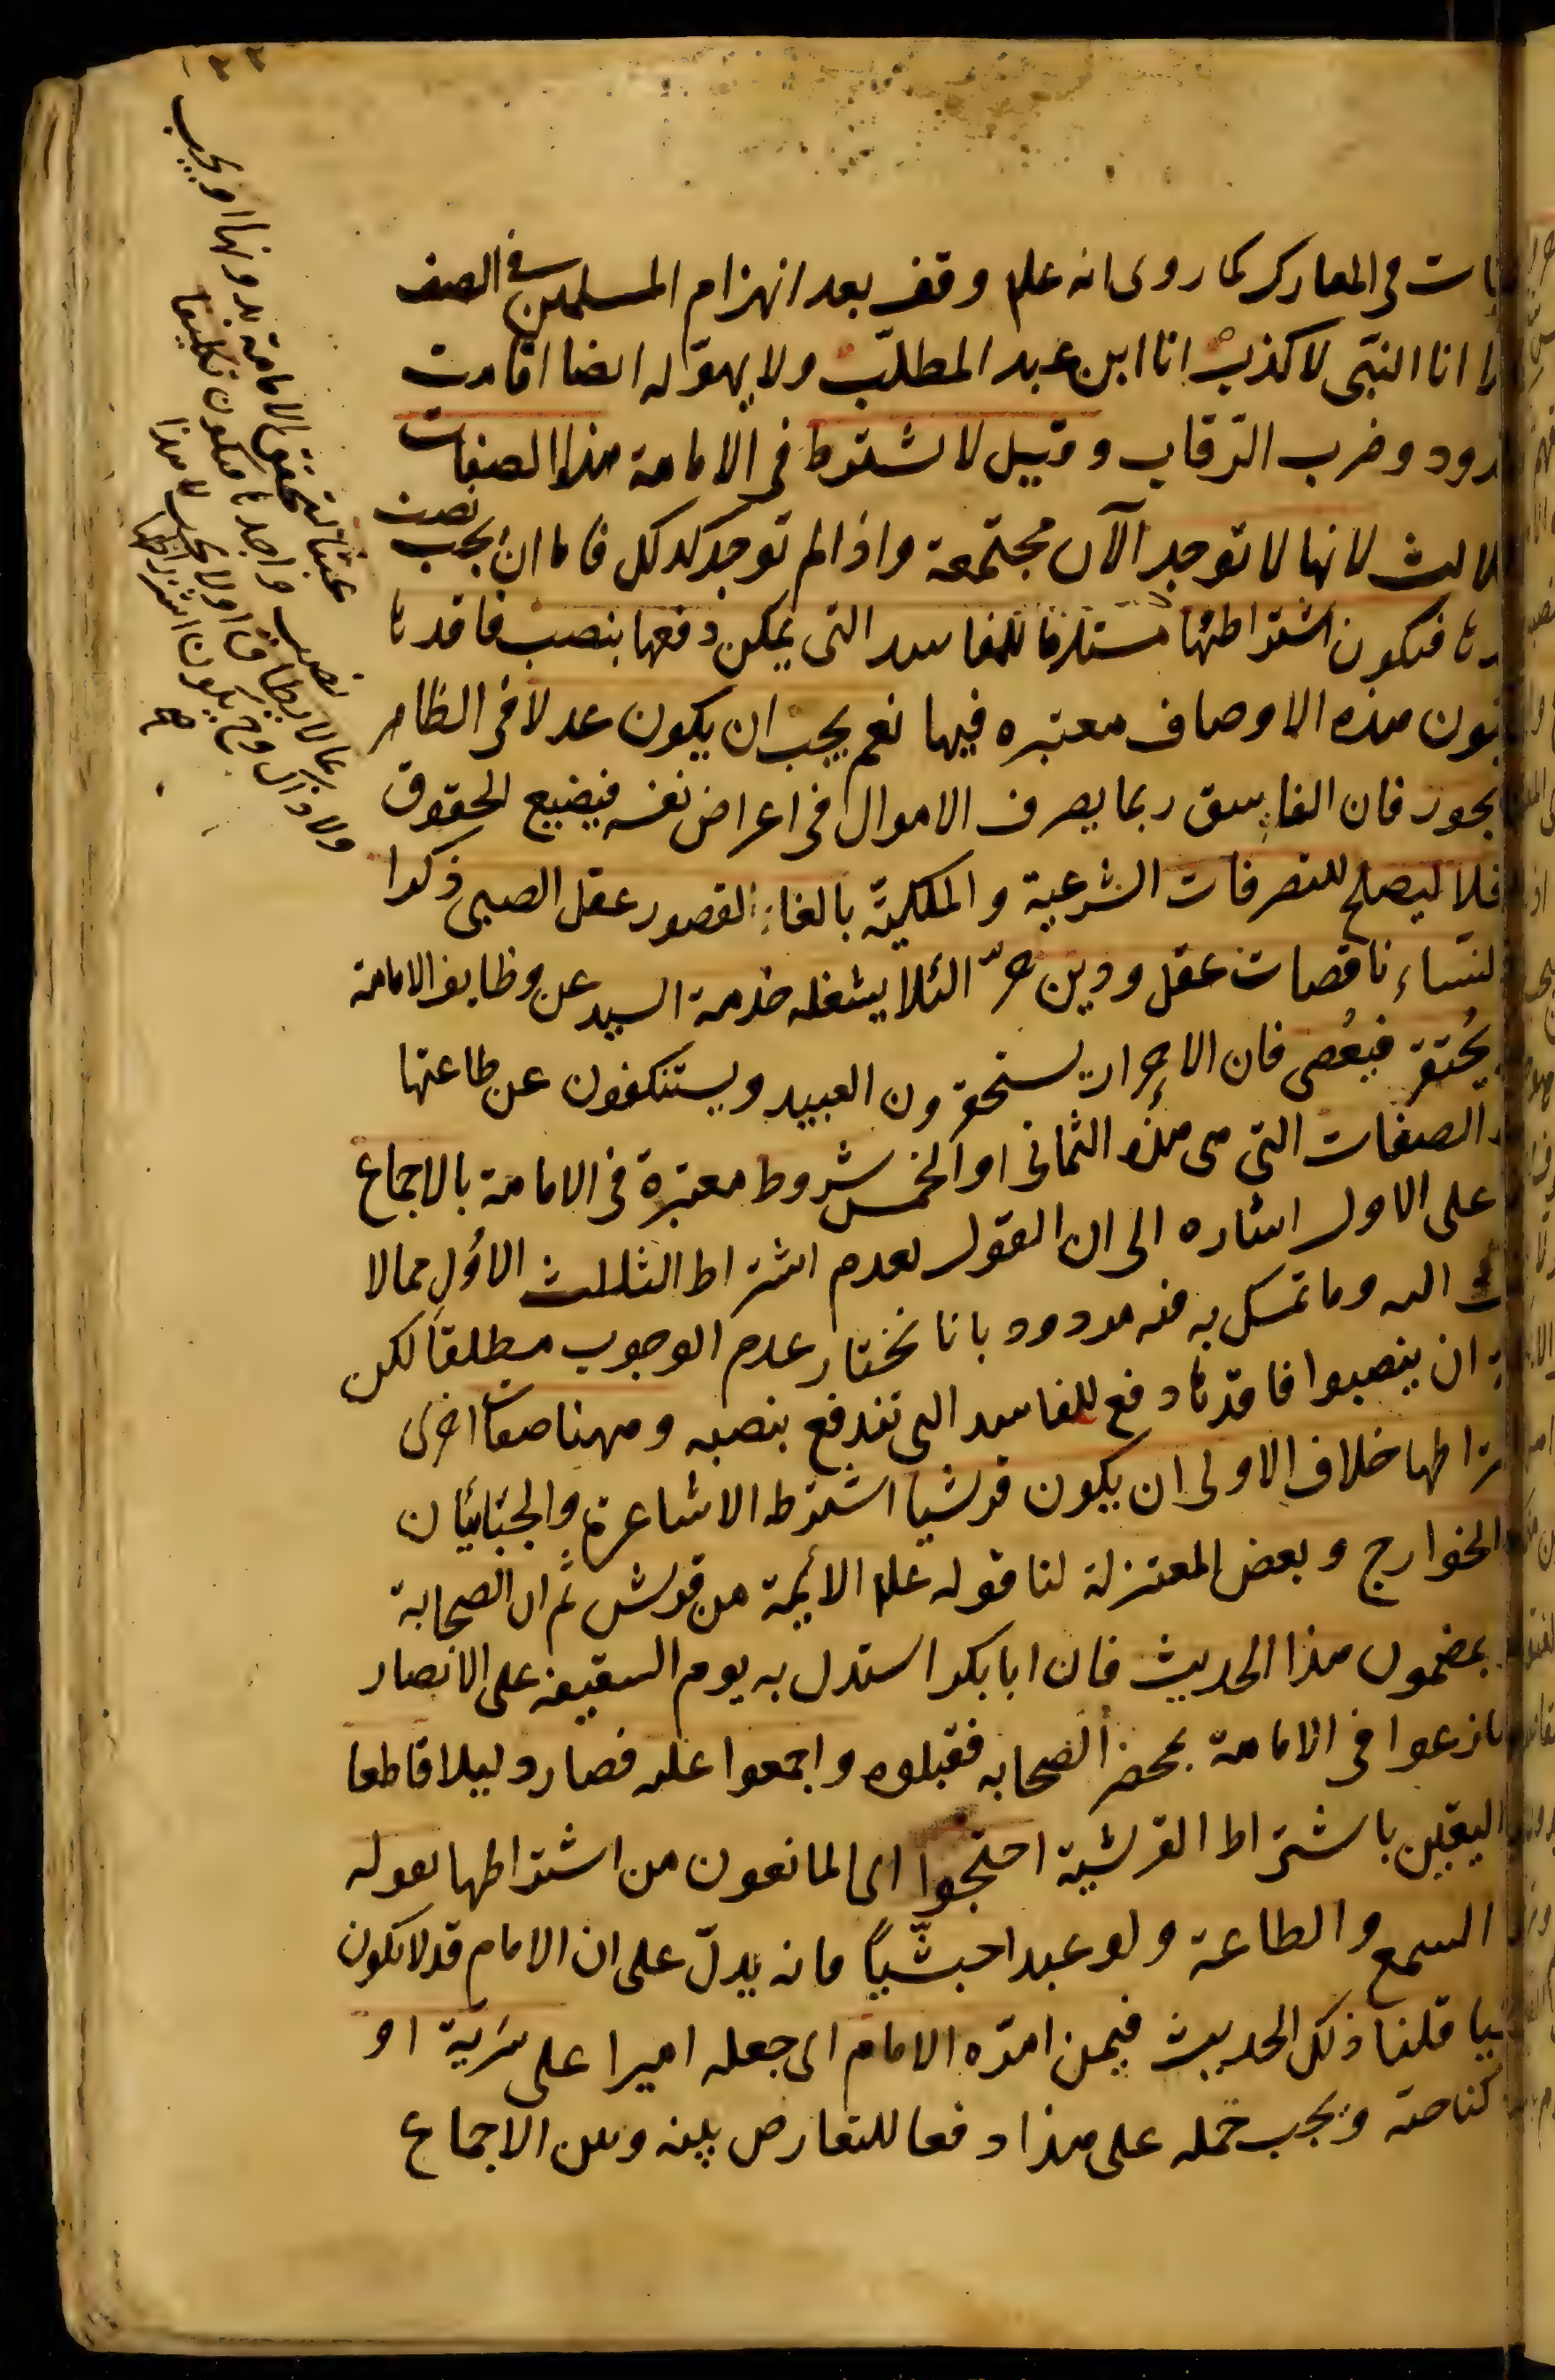 ثبات فى المعارك كما روى انه علم وقف بعد انهزام المسلمين فى الصف
انا النبى لا كذب انا ابن عبد المطلب ولا يهوله ايضا اقامت
دود وضرب الرقاب وقيل لا يشترط فى الامامة هذه الصفات
لانها لا توجد الآن مجتمعة واذا لم توجد كذلك فاما ان يجب نصب
فيكون اشتراطها مستلزما للمفاسد التى يمكن دفعها بنصب فاقدها
هذه الاوصاف معتبره فيها نعم يجب ان يكون عدلا فى الظاهر
يجور فان الفاسق ربما يصرف الاموال فى اغراض نفسه فيضيع الحقوق
ليصلح للتصرفات الشرعية والملكية بالغا لقصور عقل الصبى ذكرا
النساء ناقصات عقل ودين حرّا لئلا يشغله خدمة السيد عن وظايف الامامة
يُحتقر فيُعصى فان الاحرار يستحقرون العبيد ويستنكفون عن طاعتها
الصفات التى هى هذه الثمانى او الخمس شروط معتبرة فى الامامة بالاجماع
على الاول اشاره الى ان القول بعدم اشتراط الثلاث الاُوَل مما لا
اليه وما تمسك به فيه مردود بانا نختار عدم الوجوب مطلقا لكن
ان ينصبوا فاقدها دفع للمفاسد التى تندفع بنصبه وههنا صفات اخرى
خلاف الاولى ان يكون قرشيا اشترطه الاشاعرة والجبّائيان
الخوارج وبعض المعتزلة لنا قوله علم الأيمة من قريش ثم ان الصحابة
بمضمون هذا الحديث فان ابا بكر استدل به يوم السقيفه على الانصار
نازعوا فى الامامة بمحضر الصحابه فقبلوه واجمعوا عليه فصار دليلا قاطعا
اليقين باشتراط القرشية احتجوا اى المانعون من اشتراطها بقوله
السمع والطاعة ولو عبدا حبشّيا فانه يدلّ على ان الامام قد لا يكون
قلنا ذلك الحديث فيمن امّره الامام اى جعله اميرا على سَرية او
كناحية ويجب حمله على هذا دفعا للتعارض بينه وبين الاجماع
عبثا لتحقق الامامة بدونها او يجب
نصب واجدها فيكون تكليفا
بما لا يطاق او لا يجب لا هذا
ولا ذاك وح يكون اشتراطها